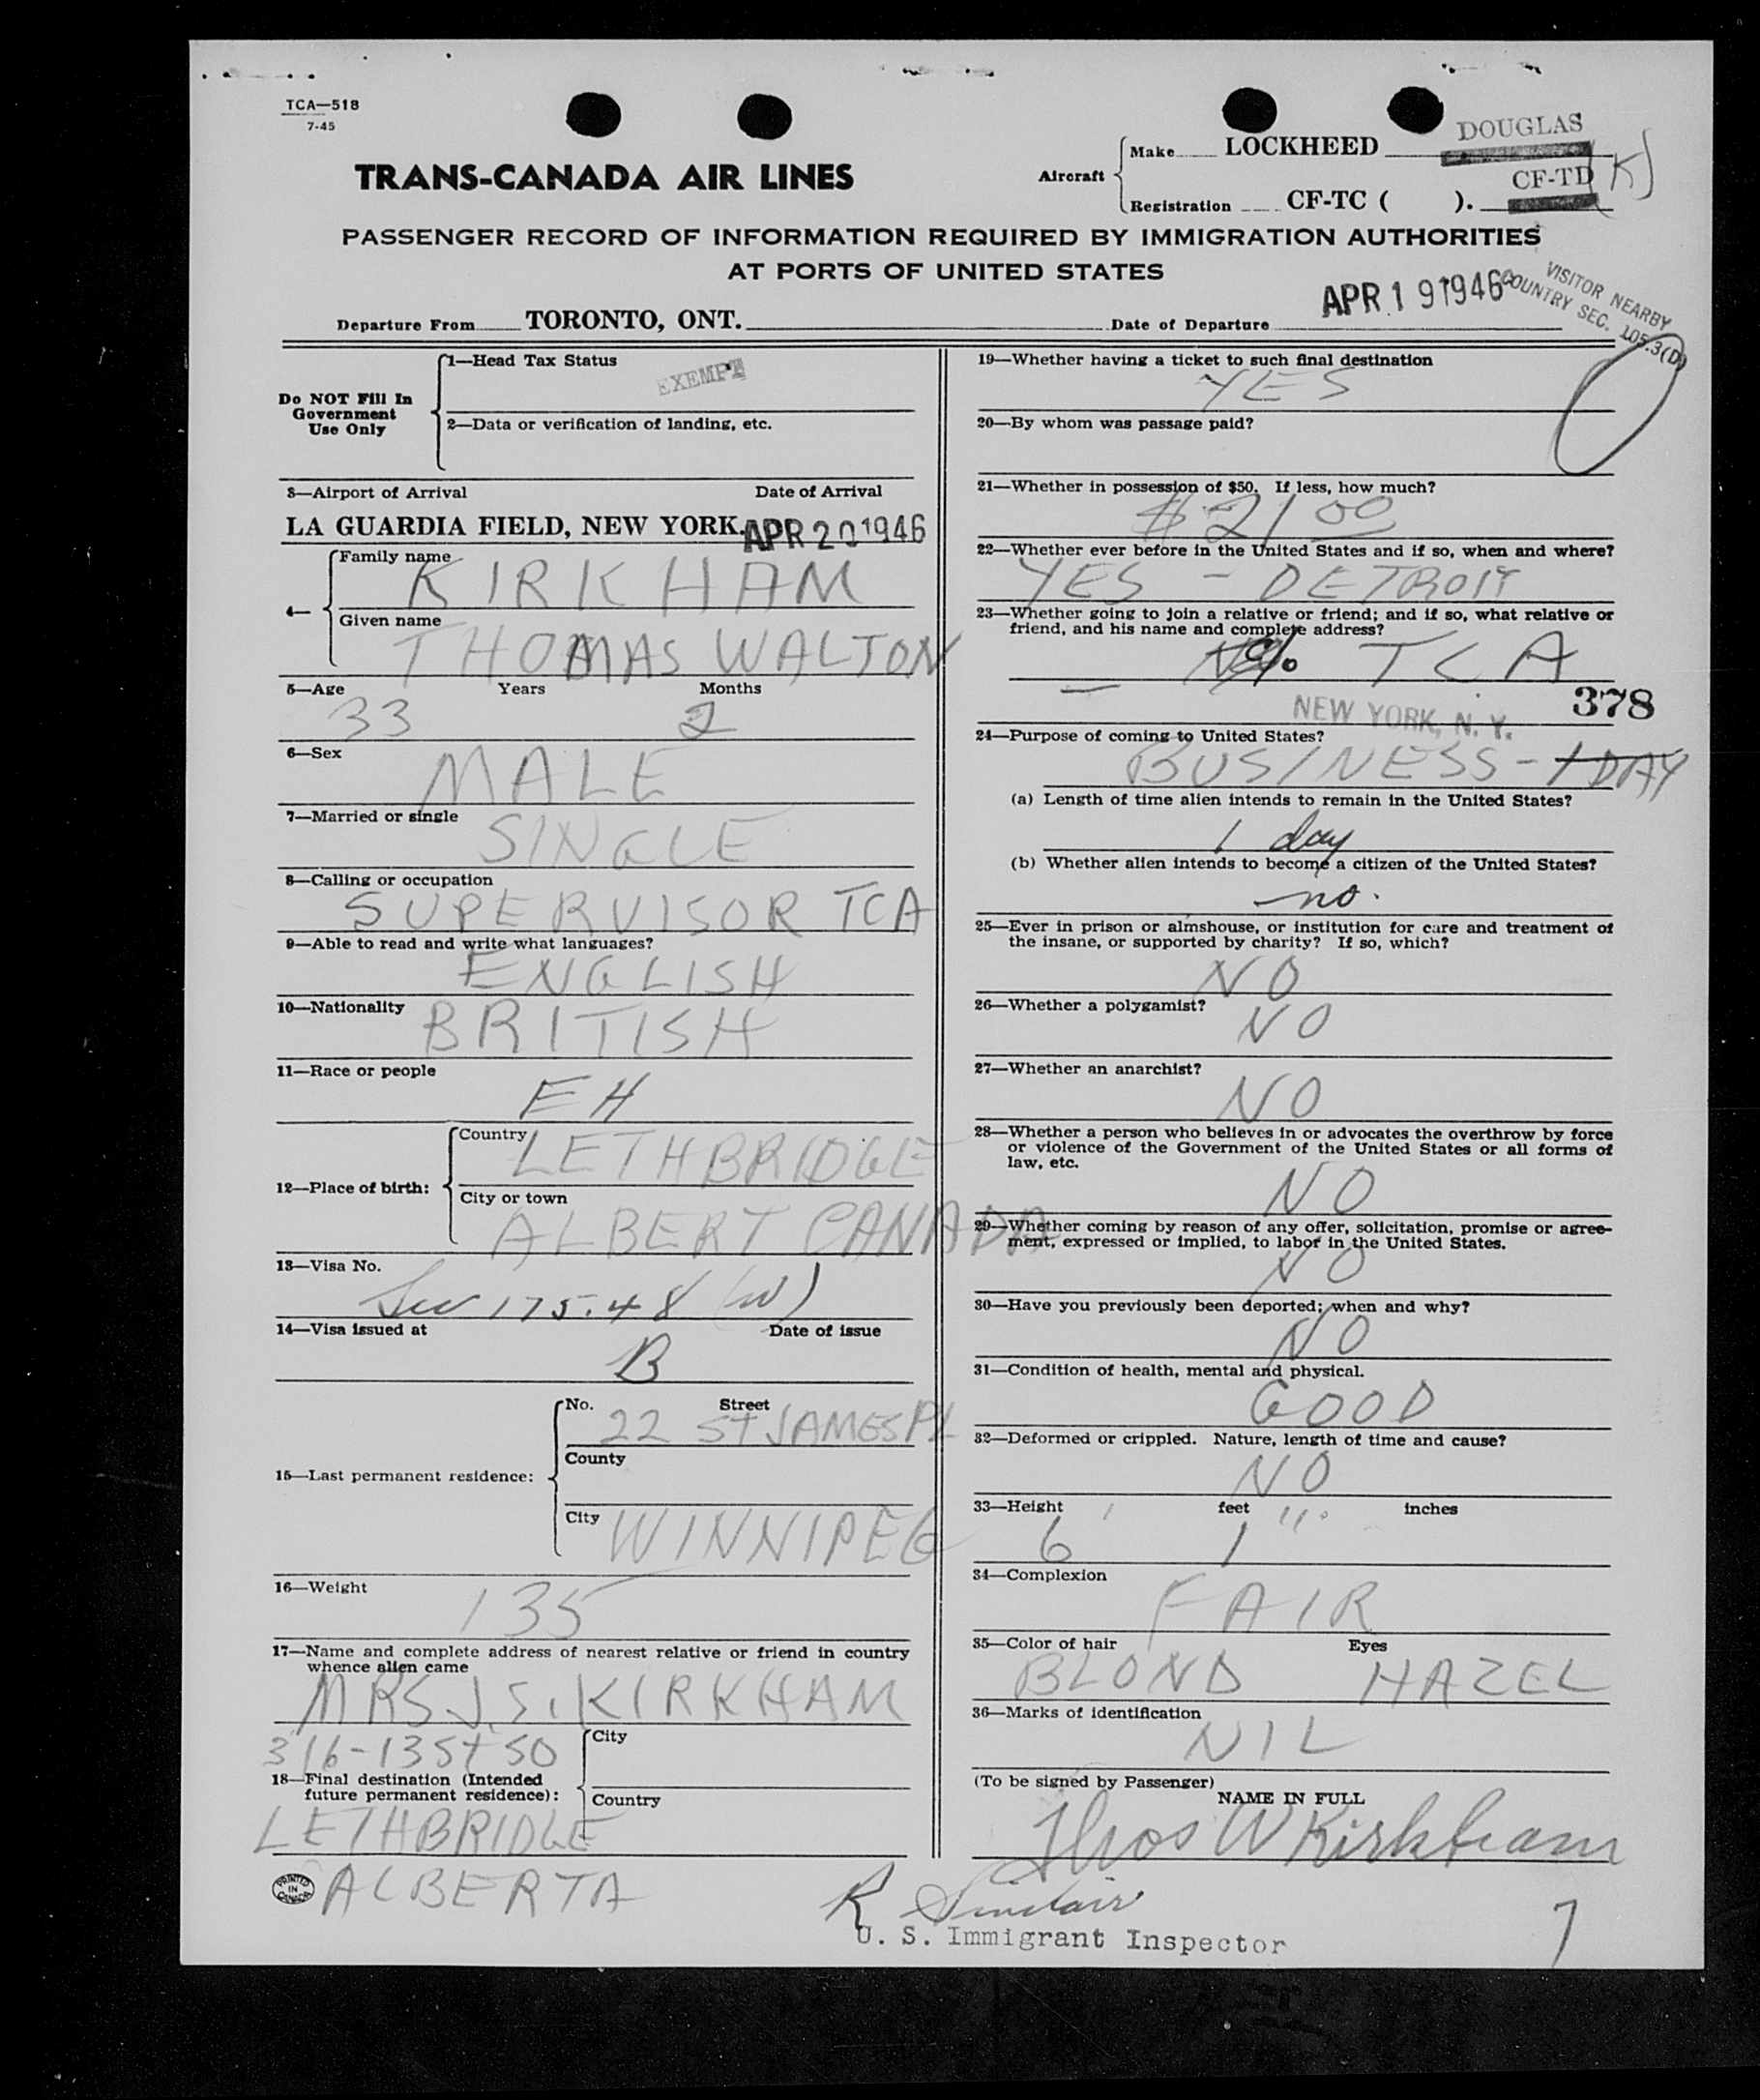 TCA—518
7-45
TRANS-CANADA AIR LINES
Aircraft
Make LOCKHEED DOUGLAS
Registration CF-TC ( ). CF-TD (K)
PASSENGER RECORD OF INFORMATION REQUIRED BY IMMIGRATION AUTHORITIES
AT PORTS OF UNITED STATES
VISITOR NEARBY
COUNTRY SEC. 105.3(D)
Departure From TORONTO, ONT. Date of Departure APR 19 1946
Do NOT Fill In
Government
Use Only
1—Head Tax Status
EXEMPT
2—Data or verification of landing, etc.
3—Airport of Arrival Date of Arrival
LA GUARDIA FIELD, NEW YORK. APR 20 1946
4—
Family name
KIRKHAM
Given name
THOMAS WALTON
5—Age Years Months
33 2
6—Sex
MALE
7—Married or single
SINGLE
8—Calling or occupation
SUPERVISOR TCA
9—Able to read and write what languages?
ENGLISH
10—Nationality
BRITISH
11—Race or people
EH
12—Place of birth:
Country
LETHBRIDGE
City or town
ALBERT CANADA
13—Visa No.
Sec 175.48 (W)
14—Visa issued at Date of issue
B
15—Last permanent residence:
No. Street
22 ST JAMES PL
County
City
WINNIPEG
16—Weight
135
17—Name and complete address of nearest relative or friend in country
whence alien came
MRS J.S. KIRKHAM
316-13 ST SO
18—Final destination (Intended
future permanent residence):
City
Country
LETHBRIDGE
ALBERTA
PRINTED
IN
CANADA
19—Whether having a ticket to such final destination
YES
20—By whom was passage paid?
21—Whether in possession of $50. If less, how much?
$21 00
22—Whether ever before in the United States and if so, when and where?
YES - DETROIT
23—Whether going to join a relative or friend; and if so, what relative or
friend, and his name and complete address?
c/o TCA
NEW YORK, N. Y.
378
24—Purpose of coming to United States?
BUSINESS - 1 DAY
(a) Length of time alien intends to remain in the United States?
1 day
(b) Whether alien intends to become a citizen of the United States?
no.
25—Ever in prison or almshouse, or institution for care and treatment of
the insane, or supported by charity? If so, which?
NO
26—Whether a polygamist?
NO
27—Whether an anarchist?
NO
28—Whether a person who believes in or advocates the overthrow by force
or violence of the Government of the United States or all forms of
law, etc.
NO
29—Whether coming by reason of any offer, solicitation, promise or agree-
ment, expressed or implied, to labor in the United States.
NO
30—Have you previously been deported; when and why?
NO
31—Condition of health, mental and physical.
GOOD
32—Deformed or crippled. Nature, length of time and cause?
NO
33—Height feet inches
6 1
34—Complexion
FAIR
35—Color of hair Eyes
BLOND HAZEL
36—Marks of identification
NIL
(To be signed by Passenger)
NAME IN FULL
Thos W Kirkham
R Sinclair
U. S. Immigrant Inspector
7